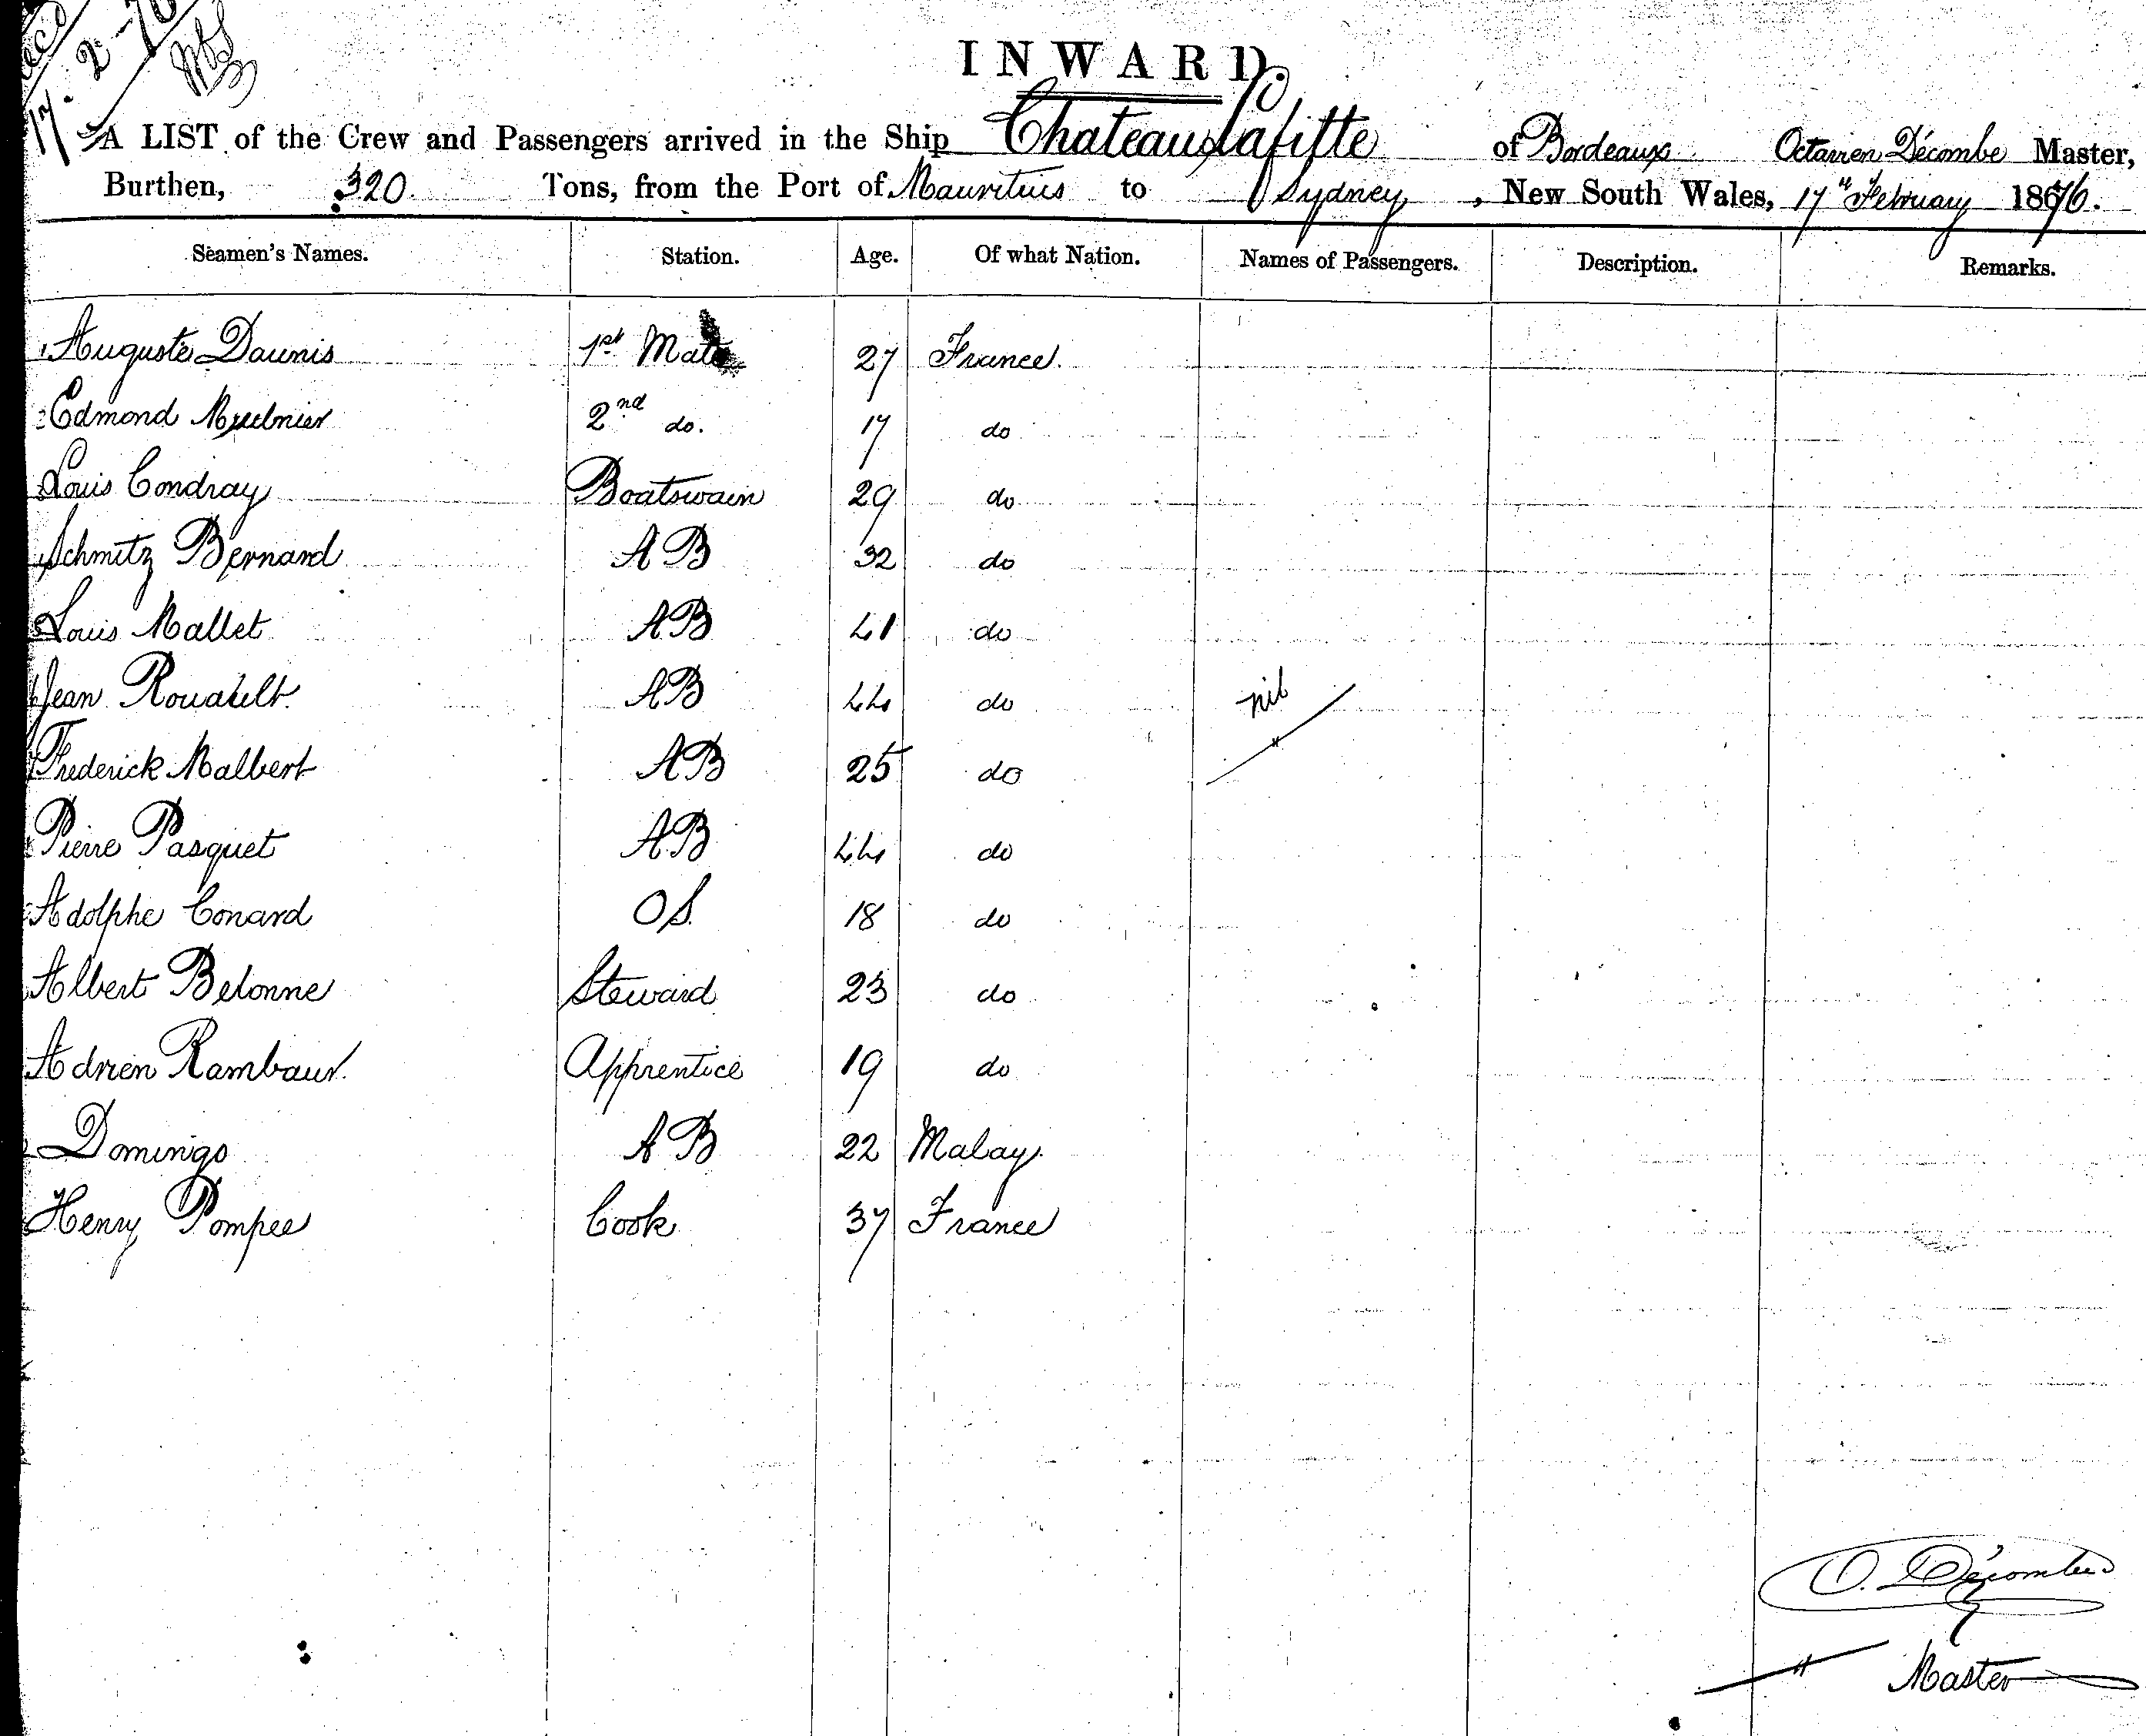 17. 2 - 76
INWARD.
A LIST of the Crew and Passengers arrived in the Ship Chateau Lafitte of Bordeaux Octavien Décombe Master,
Burthen, 320 Tons, from the Port of Mauritius to Sydney, New South Wales, 17th February 1876.
Seamen's Names. Station. Age. Of what Nation. Names of Passengers. Description. Remarks.
Auguste Daunis 1st Mate 27 France
Edmond 2nd do. 17 do
Louis Condray Boatswain 29 do
Schmitz Bernard AB 32 do
Louis Mallet AB 41 do
Jean Rouault AB 44 do nil
Frederick Malbert AB 25 do
Pierre Pasquet AB 44 do
Adolphe Conard OS. 18 do
Albert Belonne Steward 23 do
Adrien Rambaur Apprentice 19 do
Domingo AB 22 Malay
Henry Pompee Cook 37 France
O. Décombe
" Master